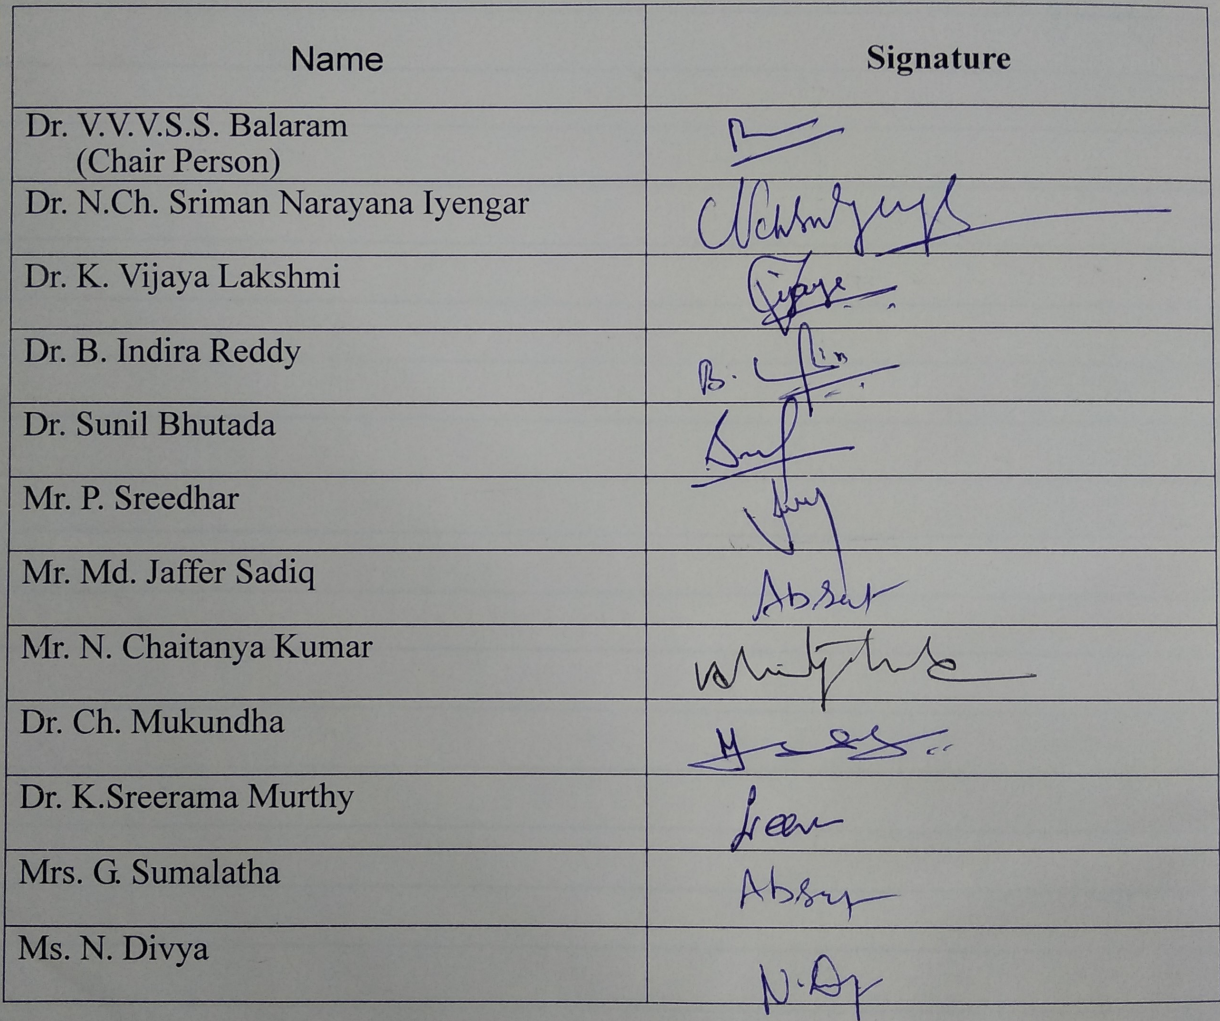 Name Signature
Dr. V.V.V.S.S. Balaram
(Chair Person)
Dr. N.Ch. Sriman Narayana Iyengar
Dr. K. Vijaya Lakshmi
Dr. B. Indira Reddy B.
Dr. Sunil Bhutada
Mr. P. Sreedhar
Mr. Md. Jaffer Sadiq Absent
Mr. N. Chaitanya Kumar
Dr. Ch. Mukundha
Dr. K.Sreerama Murthy
Mrs. G. Sumalatha Absent
Ms. N. Divya N.